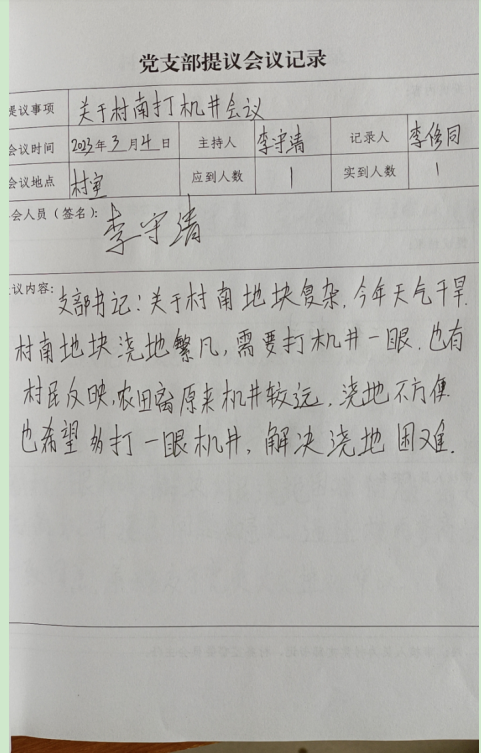 党支部提议会议记录
提议事项 关于村南打机井会议
会议时间 2023年3月4日 主持人 李守清 记录人 李修同
会议地点 村室 应到人数 1 实到人数 1
会人员（签名）： 李守清
议内容： 支部书记：关于村南地块复杂.今年天气干旱.
村南地块浇地繁凡,需要打机井一眼.也有
村民反映,农田离原来机井较远.浇地不方便
也希望多打一眼机井,解决浇地困难.